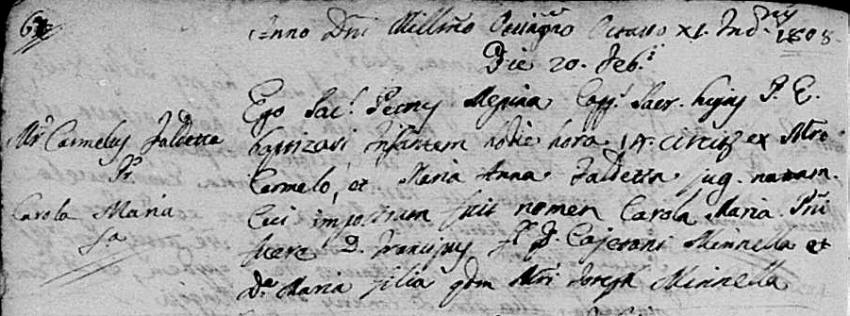 Anno Dni Millmo Octingmo Octavo XI. Indnis 1808.
Die 20. Feb.i
Ego Sac.s Petrus Messina Capp.s Sacr. hujus P. E.
Mr Carmelus Faldetta baptizavi Infantem hodie hora 14. circiter ex Mro
Pr Carmelo, et Maria Anna Faldetta jug. natam.
Carola Maria Cui impositum fuit nomen Carola Maria. Pni
fa fuere D. Franciscus fs D. Cajetani Minnella et
Da Maria filia qdm Mri Joseph Minnella